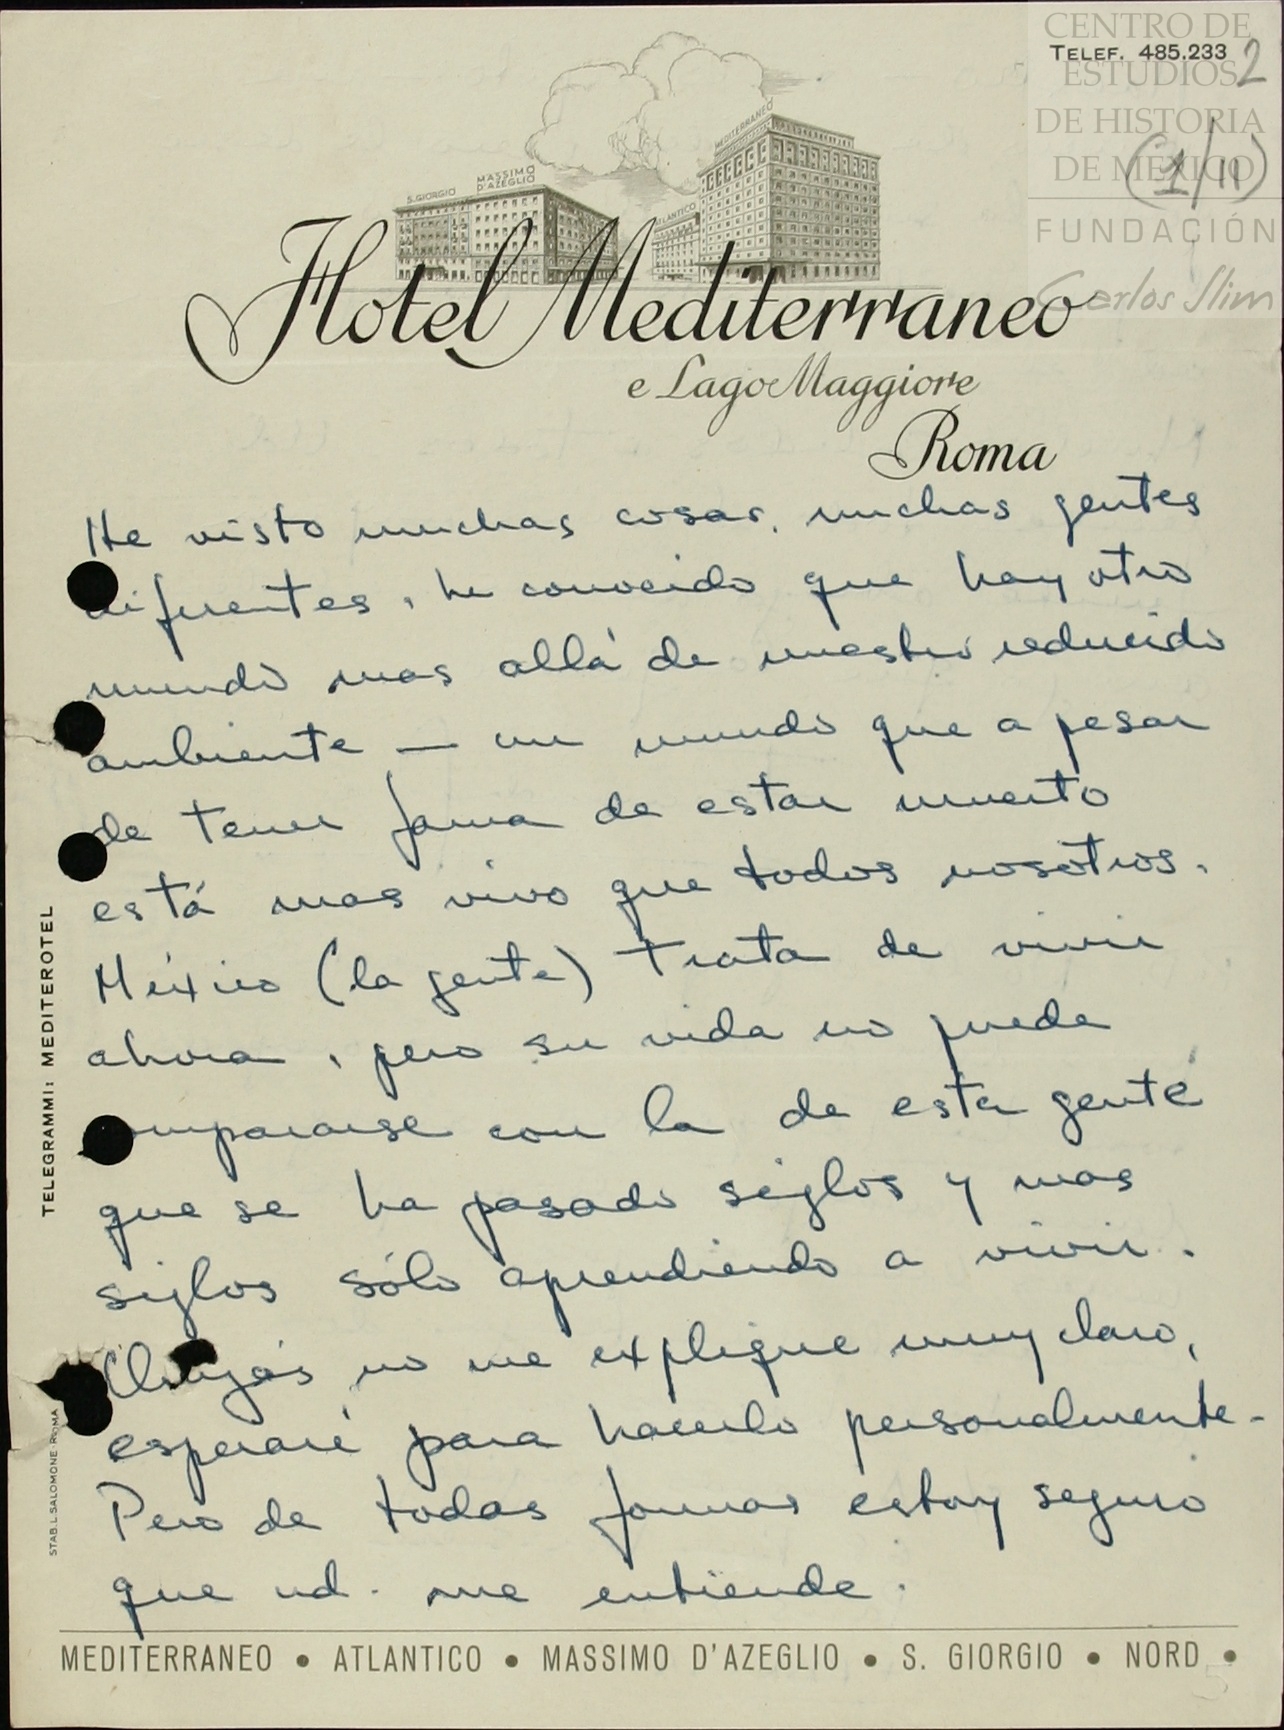 CENTRO DE
TELEF. 485.233 2
ESTUDIOS
DE HISTORIA
DE MÉXICO
(1/11)
FUNDACIÓN
Carlos Slim
S. GIORGIO
MASSIMO
D'AZEGLIO
ATLANTICO
MEDITERRANEO
Hotel Mediterraneo
e Lago Maggiore
Roma
He visto muchas cosas, muchas gentes
diferentes, he conocido que hay otro
mundo mas allá de nuestro reducido
ambiente — un mundo que a pesar
de tener fama de estar muerto
está mas vivo que todos nosotros.
México (la gente) trata de vivir
ahora, pero su vida no puede
compararse con la de esta gente
que se ha pasado siglos y mas
siglos sólo aprendiendo a vivir.
no me explique muy claro,
esperaré para hacerlo personalmente.
Pero de todas formas estoy seguro
que ud. me entiende.
TELEGRAMMI: MEDITEROTEL
STAB. L. SALOMONE ROMA
MEDITERRANEO • ATLANTICO • MASSIMO D'AZEGLIO • S. GIORGIO • NORD •